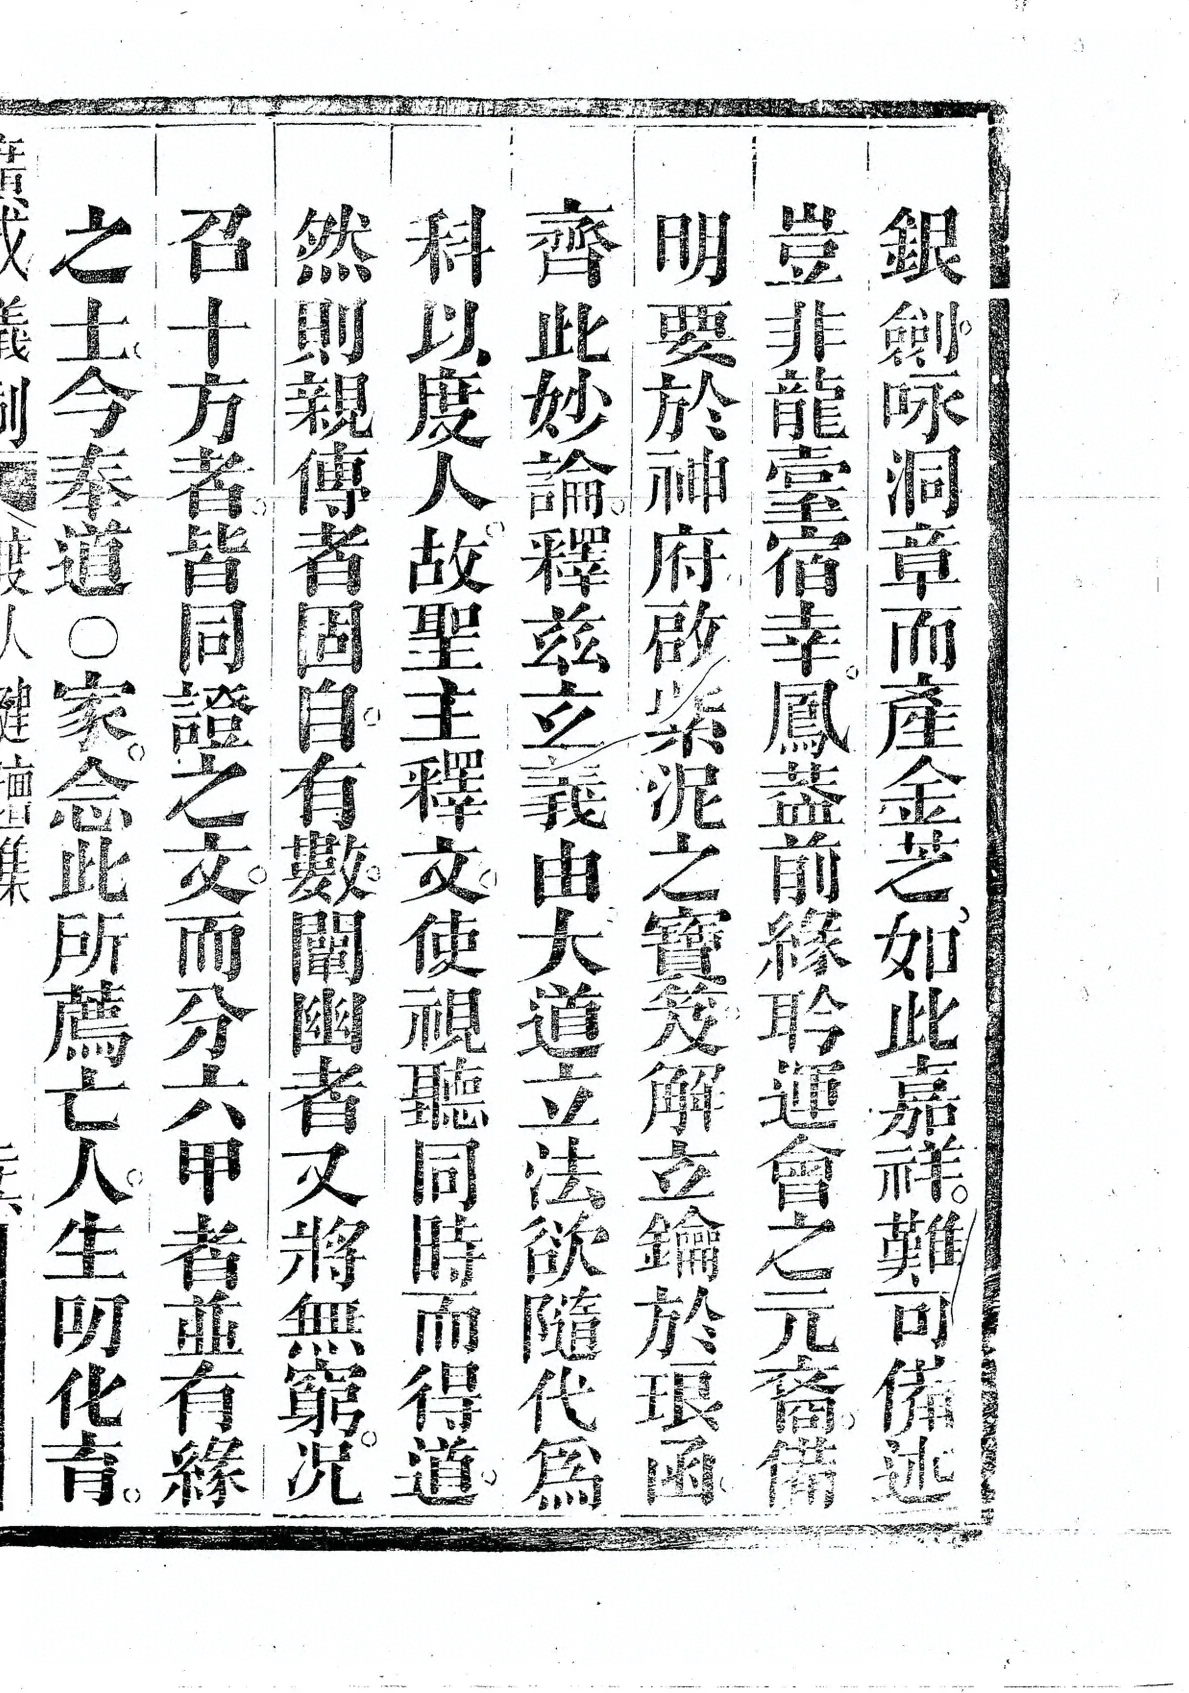 銀劍咏洞章而產金芝如此嘉祥難可備述
豈非龍臺宿幸鳳葢前緣聆運會之元裔備
明要於神府啟紫泥之寶笈解立鑰於琅函
齊此妙論釋茲玄義由大道立法欲隨代為
科以度人故聖主釋文使視聽同時而得道
然則親傳者固自有數闡幽者又將無窮况
召十方者皆同證之文而分六甲者並有緣
之士今奉道〇家念此所薦亡人生叨化育
廣成儀制